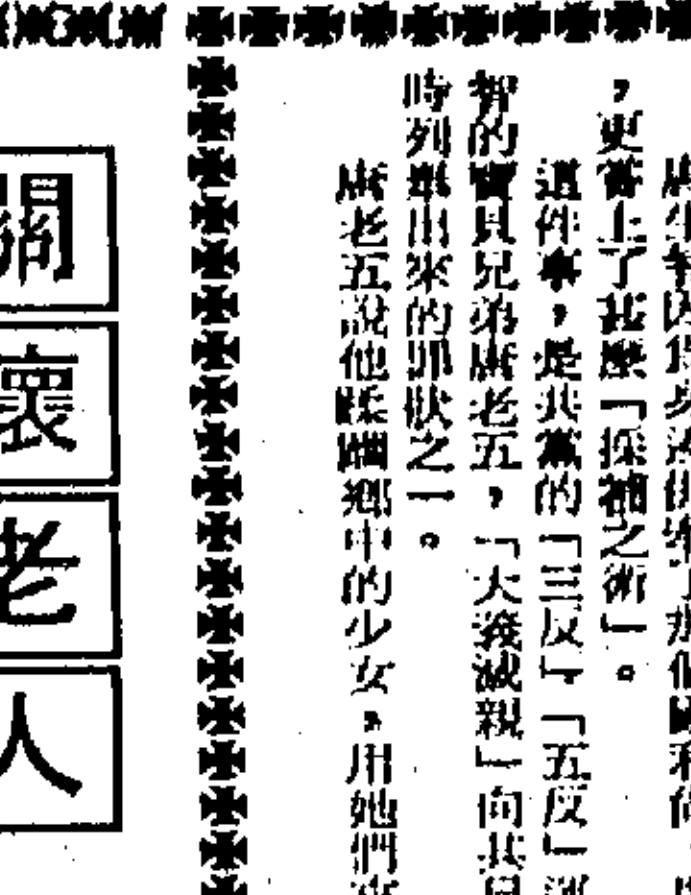 唐生智因
，更嘗上了甚麼「採補之術」。
這件事，是共黨的「三反」「五反」運
智的寶貝兄弟唐老五，「大義滅親」向共
時列舉出來的罪狀之一。
唐老五說他蹂躪鄉中的少女，用她們
關懷老人